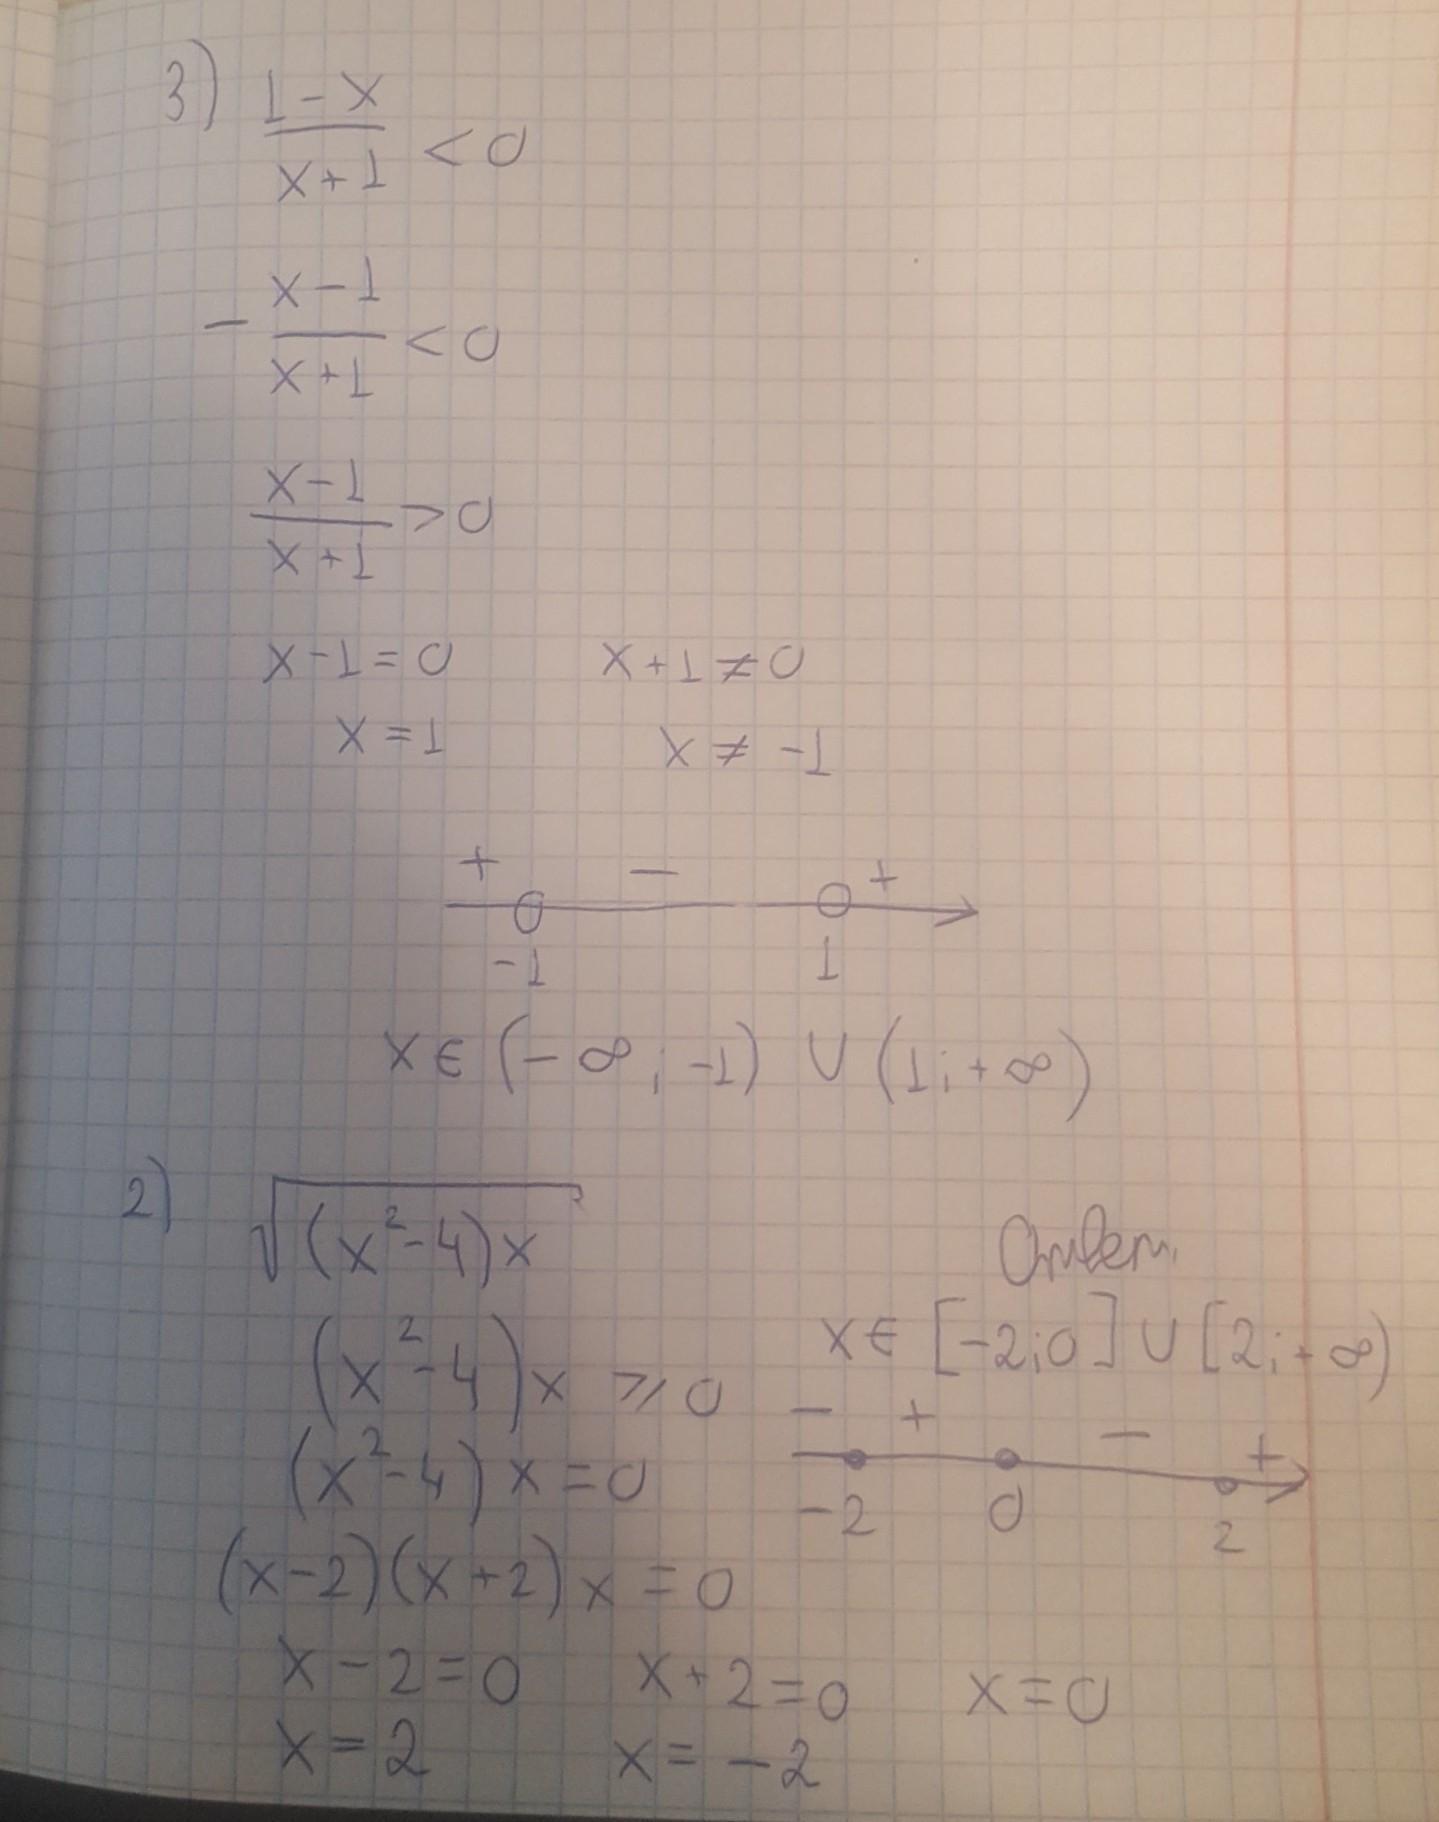 3) (1-x)/(x+1) < 0
- (x-1)/(x+1) < 0
(x-1)/(x+1) > 0
x-1=0 x+1≠0
x=1 x≠-1
+ - +
-1 1
x∈(-∞;-1)∪(1;+∞)
2) √((x²-4)x)
Ответ.
(x²-4)x ⩾ 0
x∈[-2;0]∪[2;+∞)
- + - +
-2 0 2
(x²-4)x=0
(x-2)(x+2)x=0
x-2=0 x+2=0 x=0
x=2 x=-2